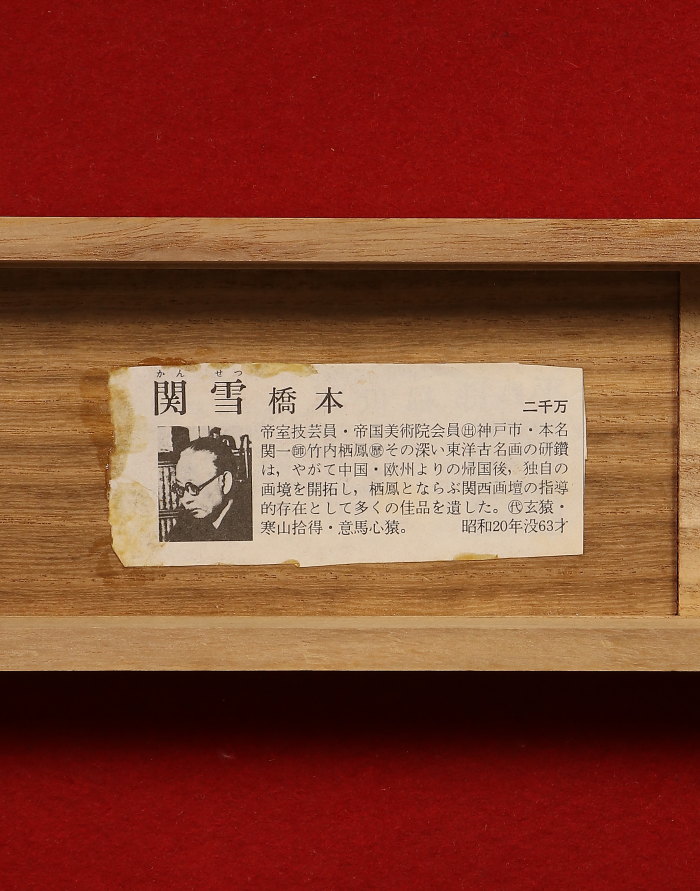 かん せつ
関 雪 橋 本 二千万
帝室技芸員・帝国美術院会員㊓神戸市・本名
関一㊓竹内栖鳳㊓その深い東洋古名画の研鑽
は，やがて中国・欧州よりの帰国後，独自の
画境を開拓し，栖鳳とならぶ関西画壇の指導
的存在として多くの佳品を遺した。代玄猿・
寒山拾得・意馬心猿。 昭和20年没63才